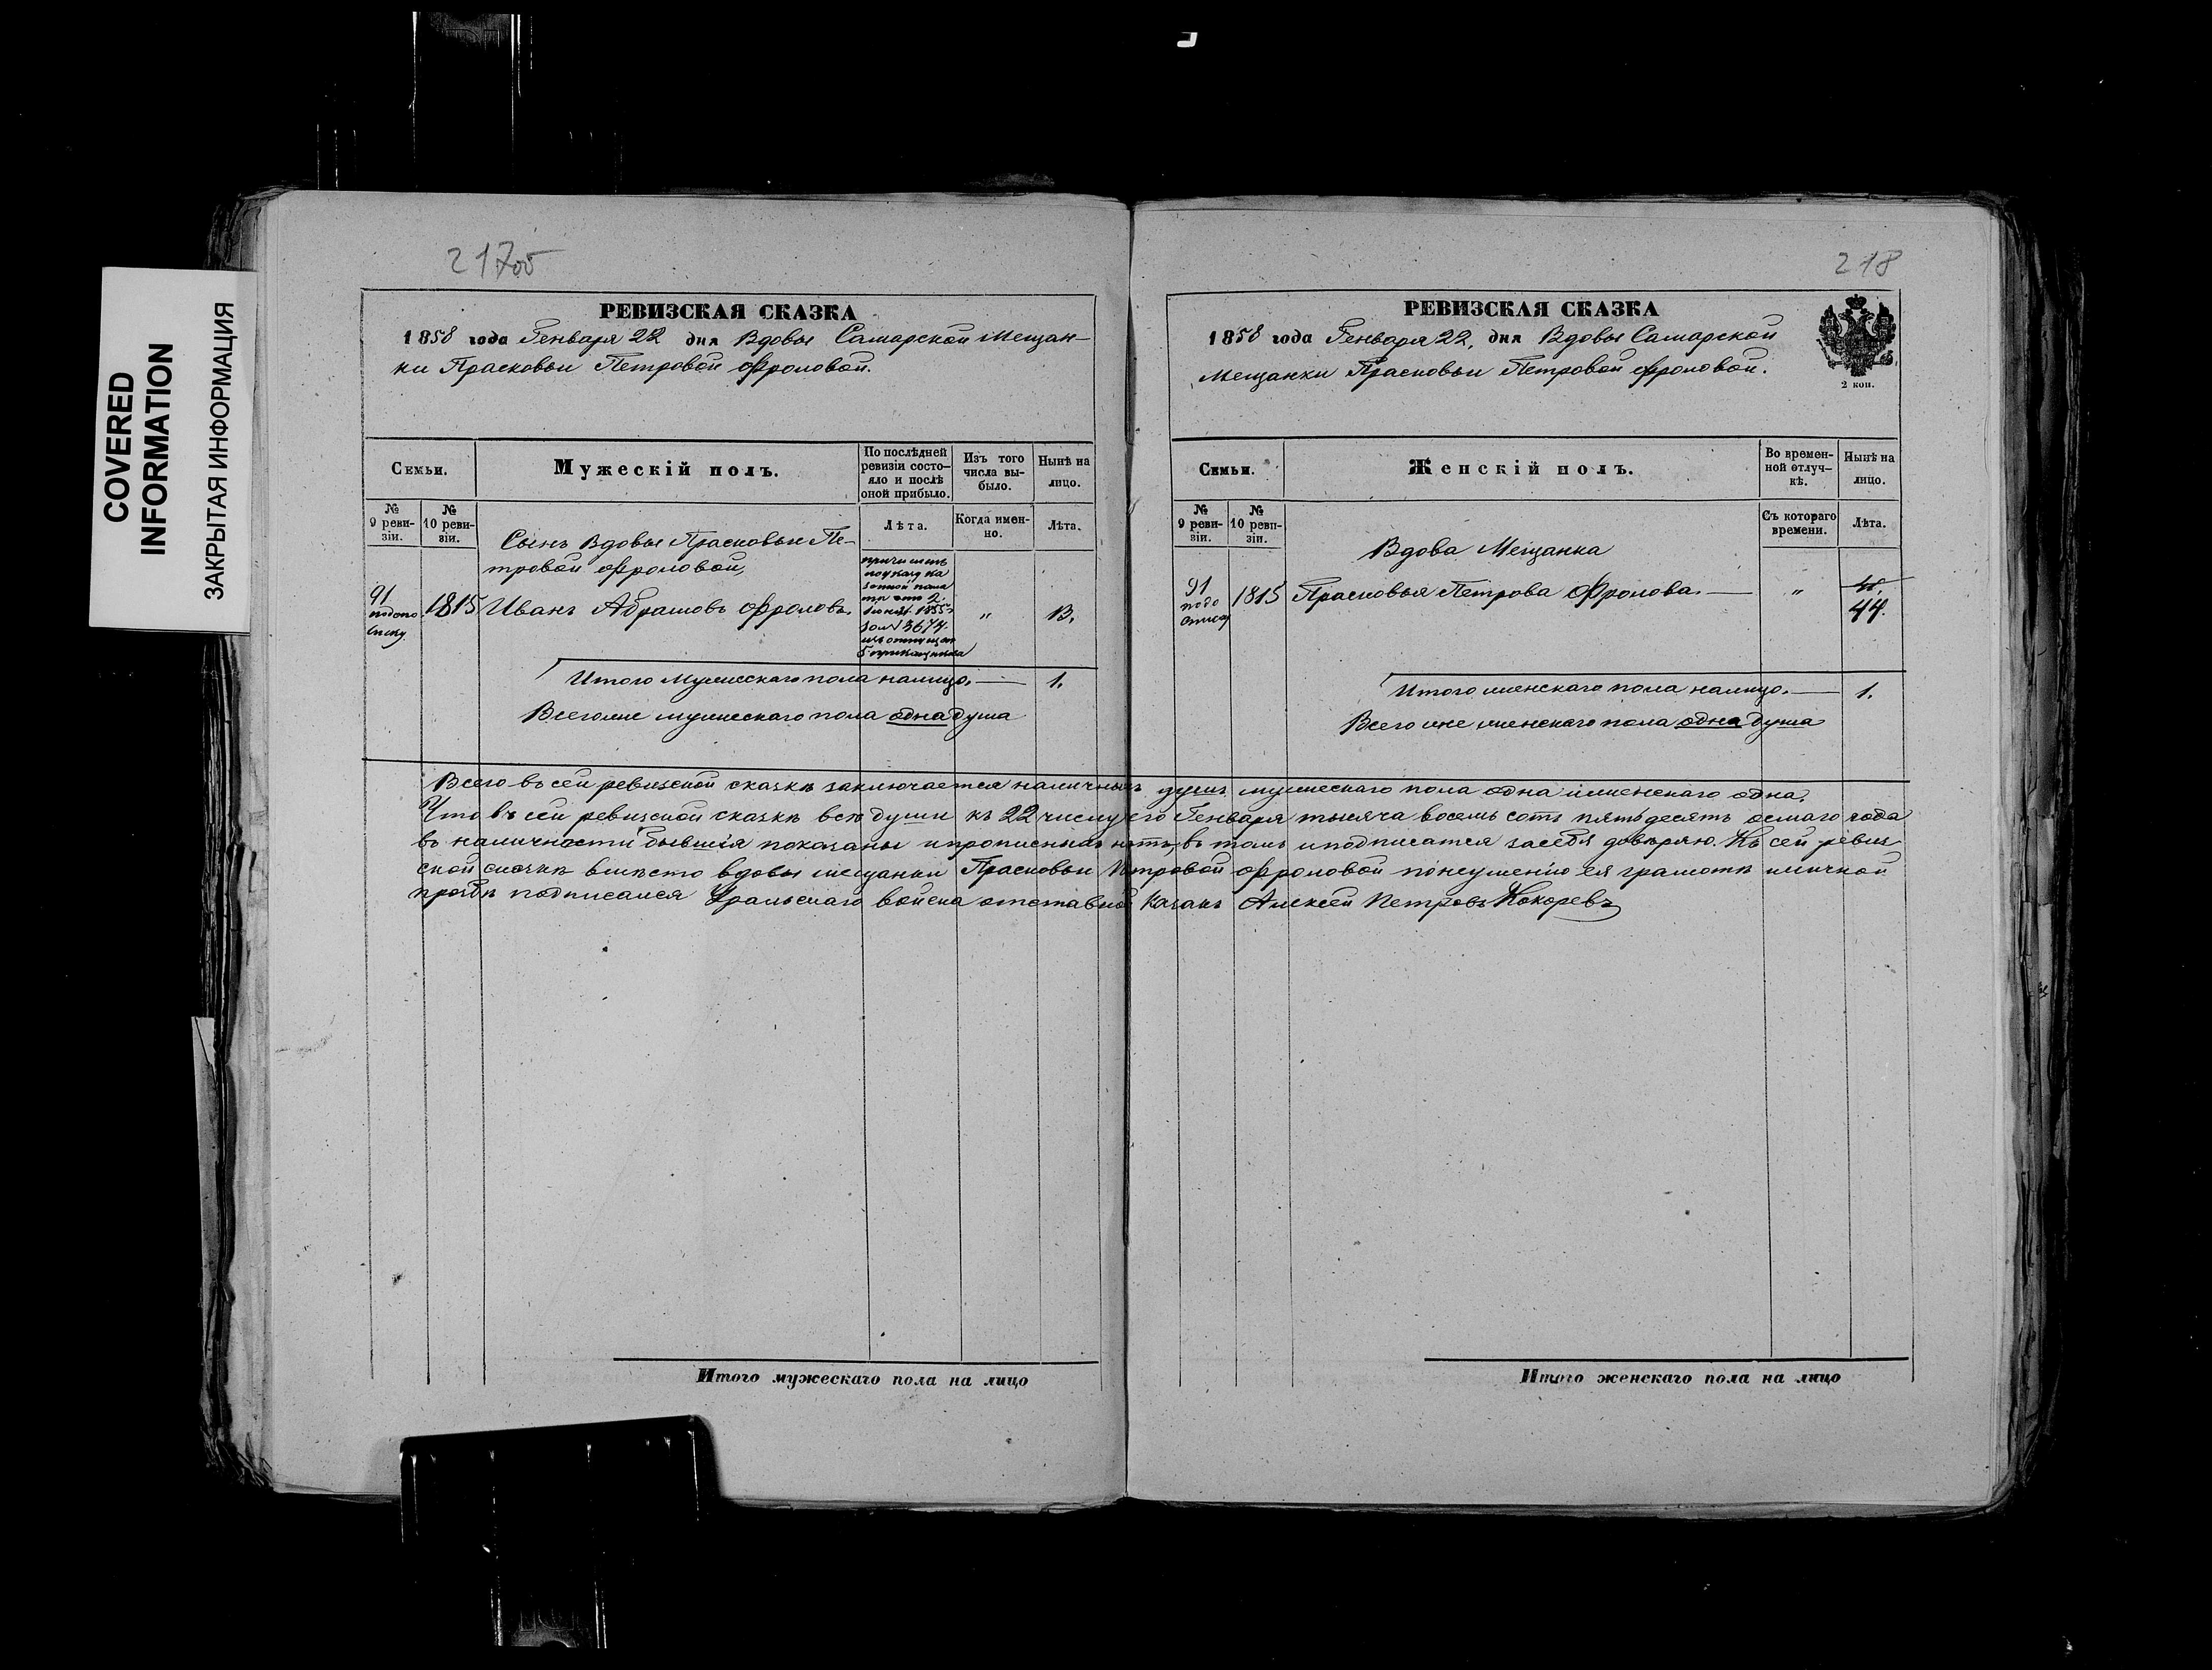 COVERED
INFORMATION
ЗАКРЫТАЯ ИНФОРМАЦИЯ
217об
РЕВИЗСКАЯ СКАЗКА
1858 года Генваря 22 дня Вдовы Самарской Мещан-
ки Прасковьи Петровой Фроловой.
Семьи.
Мужескій полъ.
По послѣдней
ревизіи состо-
яло и послѣ
оной прибыло.
Изъ того
числа вы-
было.
Нынѣ на
лицо.
№
9 реви-
зіи.
№
10 реви-
зіи.
Лѣта.
Когда имен-
но.
Лѣта.
Сынъ Вдовы Прасковьи Пе-
тровой Фроловой,
91
1815 Иванъ Абрамовъ Фроловъ.
1855
№ 3674
"
13.
Итого Мужескаго пола налицо. — 1.
Всегоже мужескаго пола одна душа
218
РЕВИЗСКАЯ СКАЗКА
1858 года Генваря 22, дня Вдовы Самарской
Мещанки Прасковьи Петровой Фроловой.
2 коп.
Семьи.
Женскій полъ.
Во времен-
ной отлуч-
кѣ.
Нынѣ на
лицо.
№
9 реви-
зіи.
№
10 реви-
зіи.
Съ котораго
времени.
Лѣта.
Вдова Мещанка
91
1815 Прасковья Петрова Фролова. — "
44.
Итого женскаго пола налицо. — 1.
Всего же женскаго пола одна душа
Всего въ сей ревизской сказкѣ заключается наличныхъ душъ мужескаго пола одна и женскаго одна.
Что въ сей ревизской сказкѣ всѣ души къ 22 числу сего Генваря тысяча восемь сотъ пятьдесятъ осмаго года
въ наличности бывшія показаны и прописныхъ нѣтъ, въ томъ и подписатся засебя довѣряю. Къ сей ревиз
ской сказкѣ вмѣсто вдовы мещанки Прасковьи Петровой Фроловой понеумѣнію ея грамотѣ иличной
прозбѣ подписался Уральскаго войска отставной Казакъ Алексей Петровъ Кокоревъ
Итого мужескаго пола на лицо
Итого женскаго пола на лицо